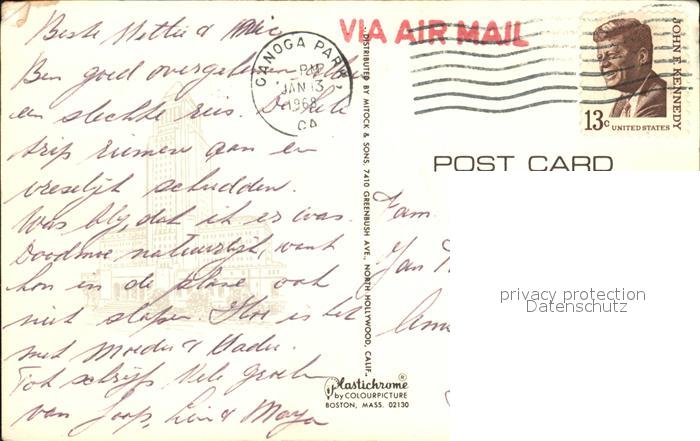 Beste Mettie &
Ben goed overgekomen,
een slechte reis. De hele
trip riemen aan en
vreselijk schudden.
Was blij, dat ik er was.
Doodmoe natuurlijk, want
kon in de plane ook
niet slapen. Hoe is het
met Moeder & Vader.
Tot schrijfs Vele groeten
van Joop, & Maya
VIA AIR MAIL
CANOGA PARK,
PM
JAN 13
1968
CA
JOHN F. KENNEDY
13c UNITED STATES
POST CARD
DISTRIBUTED BY MITOCK & SONS, 7410 GREENBUSH AVE., NORTH HOLLYWOOD, CALIF.
Fam.
Jan
privacy protection
Datenschutz
Plastichrome®
by COLOURPICTURE
BOSTON, MASS. 02130